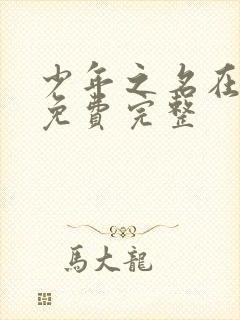 少年之名在
免費完整
馬大龍